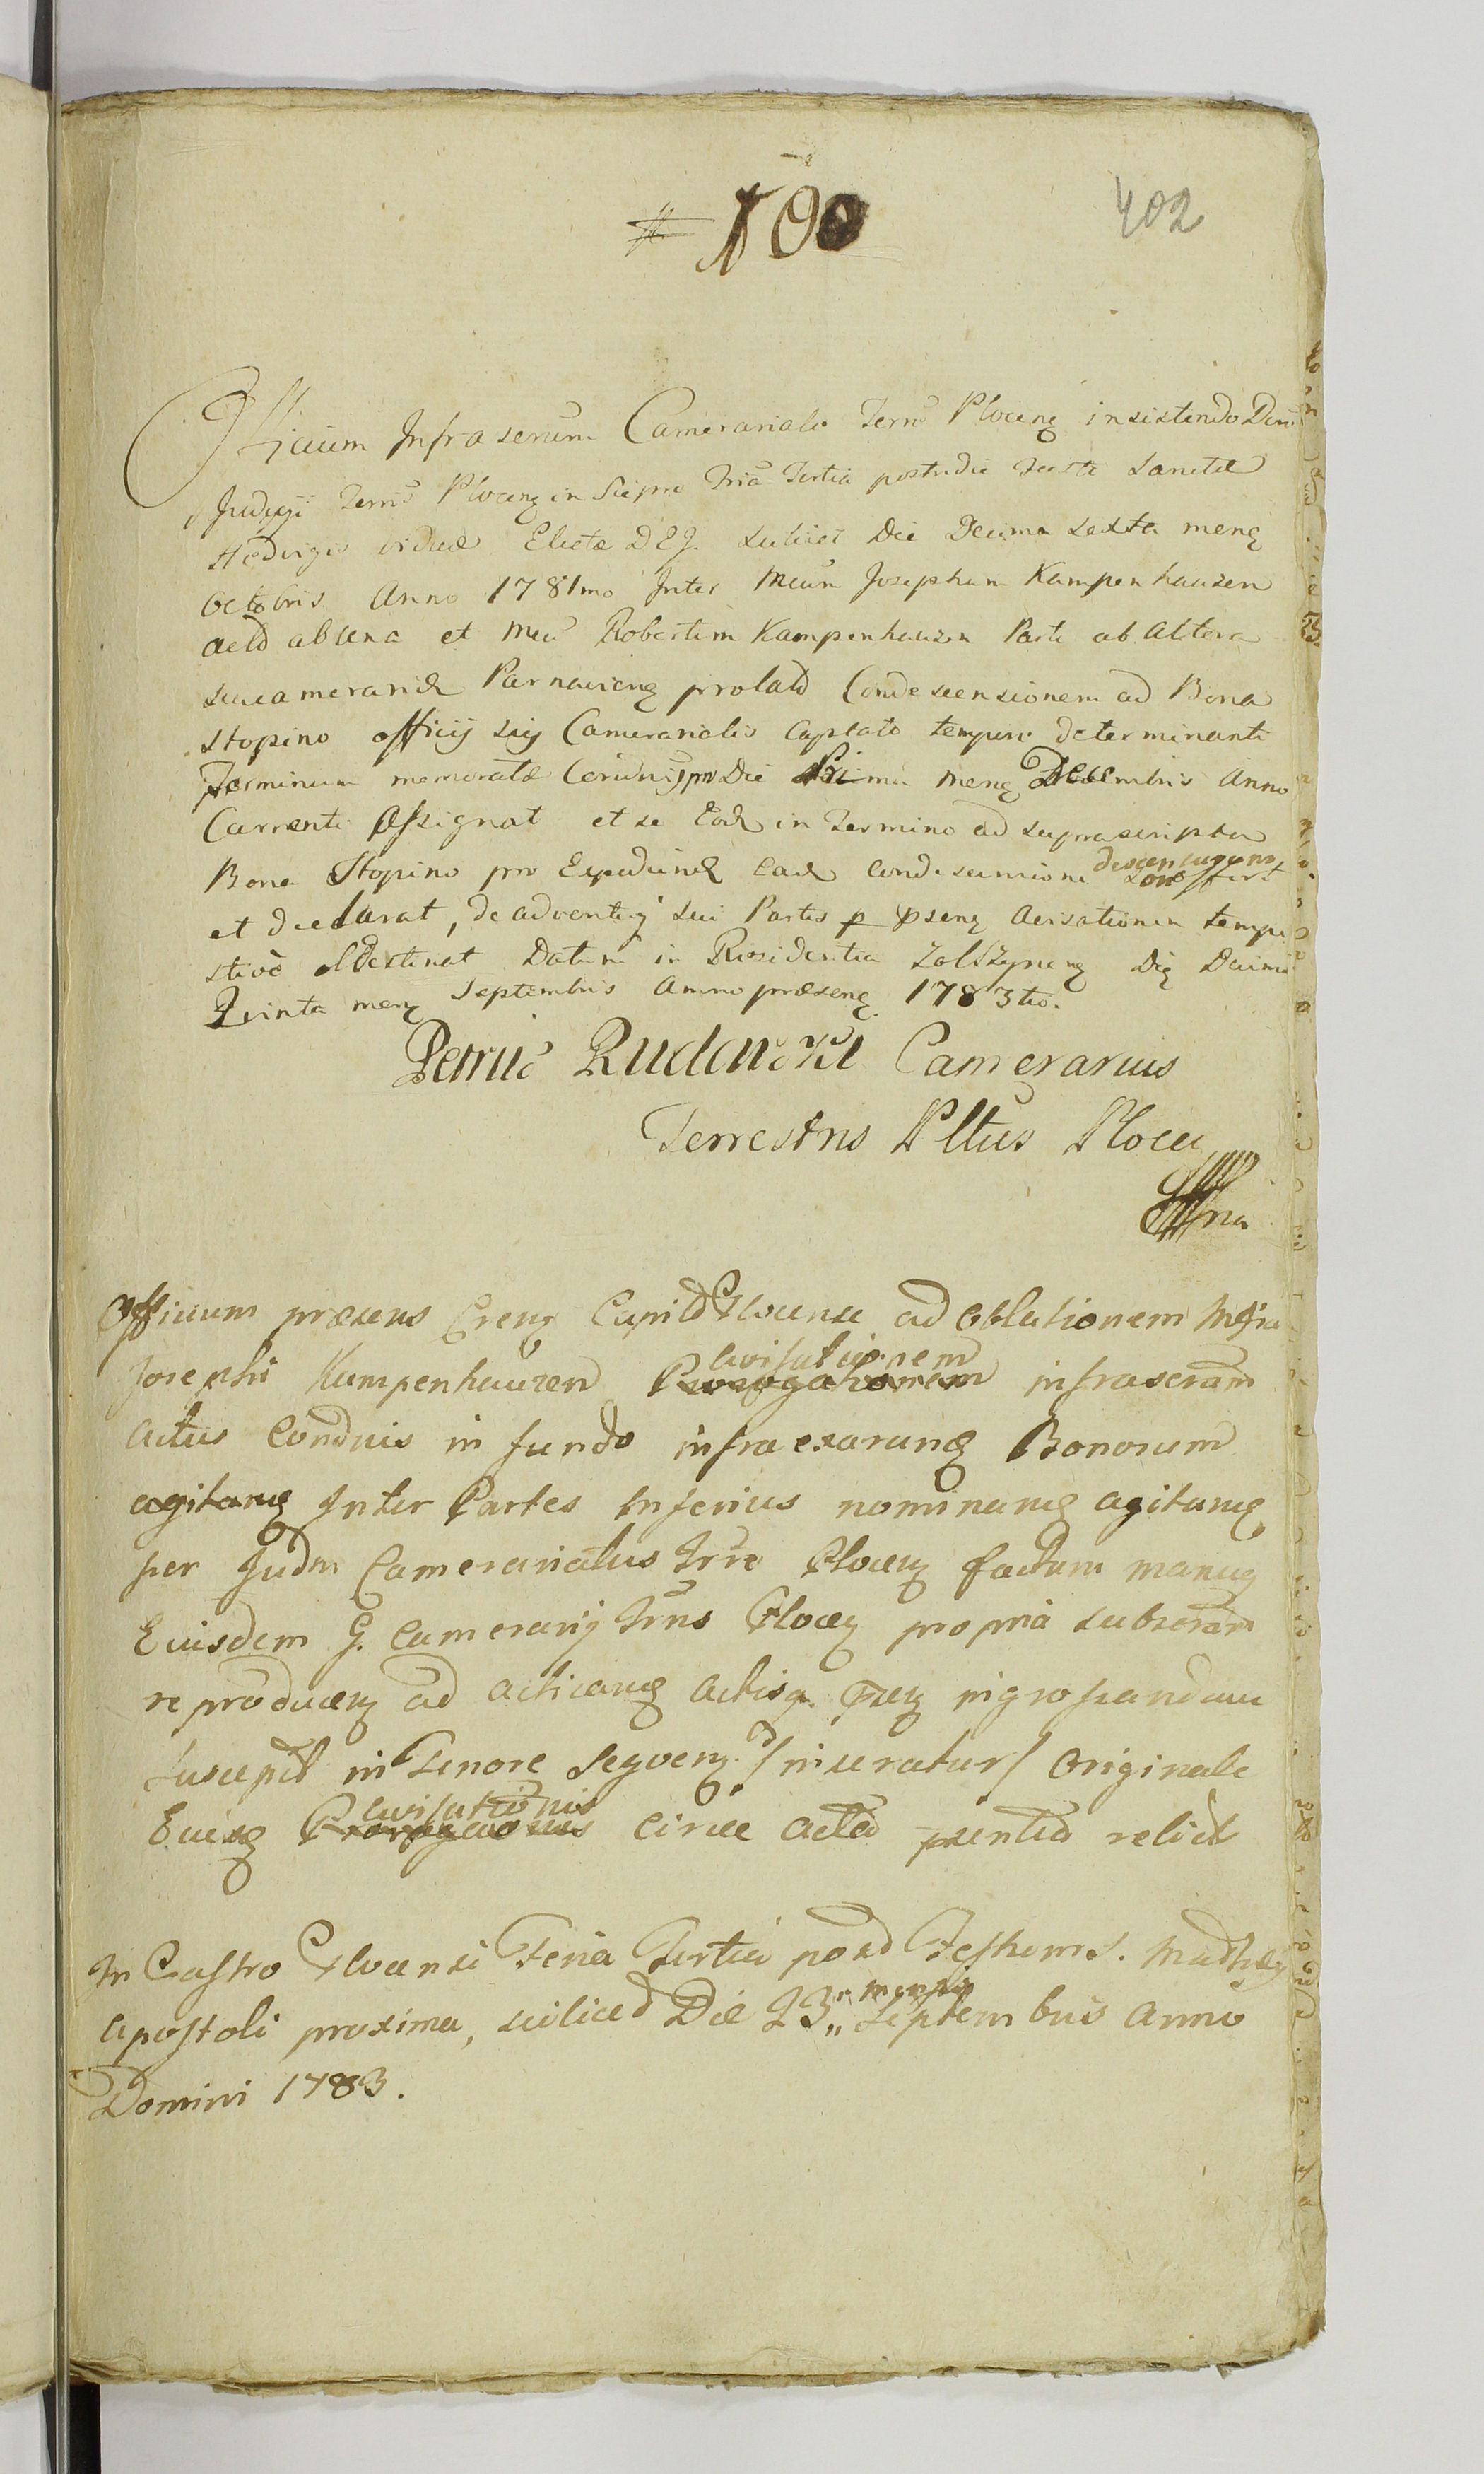 # 100
402
Officium Infrascrum Camerariale Terrs Plocens insistendo Dec
Judicii Terris Plocens in Sierpc Fria Tertia postridie Festi Sanctæ
Hedvigis viduæ Electæ DEJ. scilicet Die Decima Sexta mens
Octobris Anno 1781mo Inter Mcum Josephum Kampenhauzen
actd ab una et Mcu Robertum Kampenhauzen Parte ab Altera
Parnaviens prolato Condescensionem ad Bona
Stopino officii sui Camerarialis captato tempore determinante
Terminum memoratæ Condnis pro Die Prima mens Decembris Anno
Currenti Assignat et se Eod in Termino ad suprascripta
Bona Stopino pro Expediend ead condescensione descensurum offert
et declarat, de adventu sui Partes p psens Avisationem tempe
stive obdestinat Datum in Residentia Zolszyn Die Decima
Quinta mens Septembris Anno præsens 1783tio.
Petrus Rudowski Camerarius
Terrestris Pltus Ploce
mp
Officium præsens Crens Capitd Plocense ad oblationem Mgfia
Josephi Kampenhauzen Prorogationem avisationem infrascram
actus Condnis in fundo infraexarans Bonorum
agitans Inter Partes Inferius nominans agitans
per Judm Camerariatus Trre Plocens factum manus
Eiusdem G. Camerarij Trris Plocens propria subscram
reproducens ad acticans actisq. suis ingrossandum
suscepit in Tenore seqvens /inseratur/ Originale
Eiusd Prorogationis avisationis circa acta psentia relict
In Castro Plocensi Feria Tertia post Festum S. Mathæi
Apostoli proxima, scilicet Die 23" mensis Septembris Anno
Domini 1783.